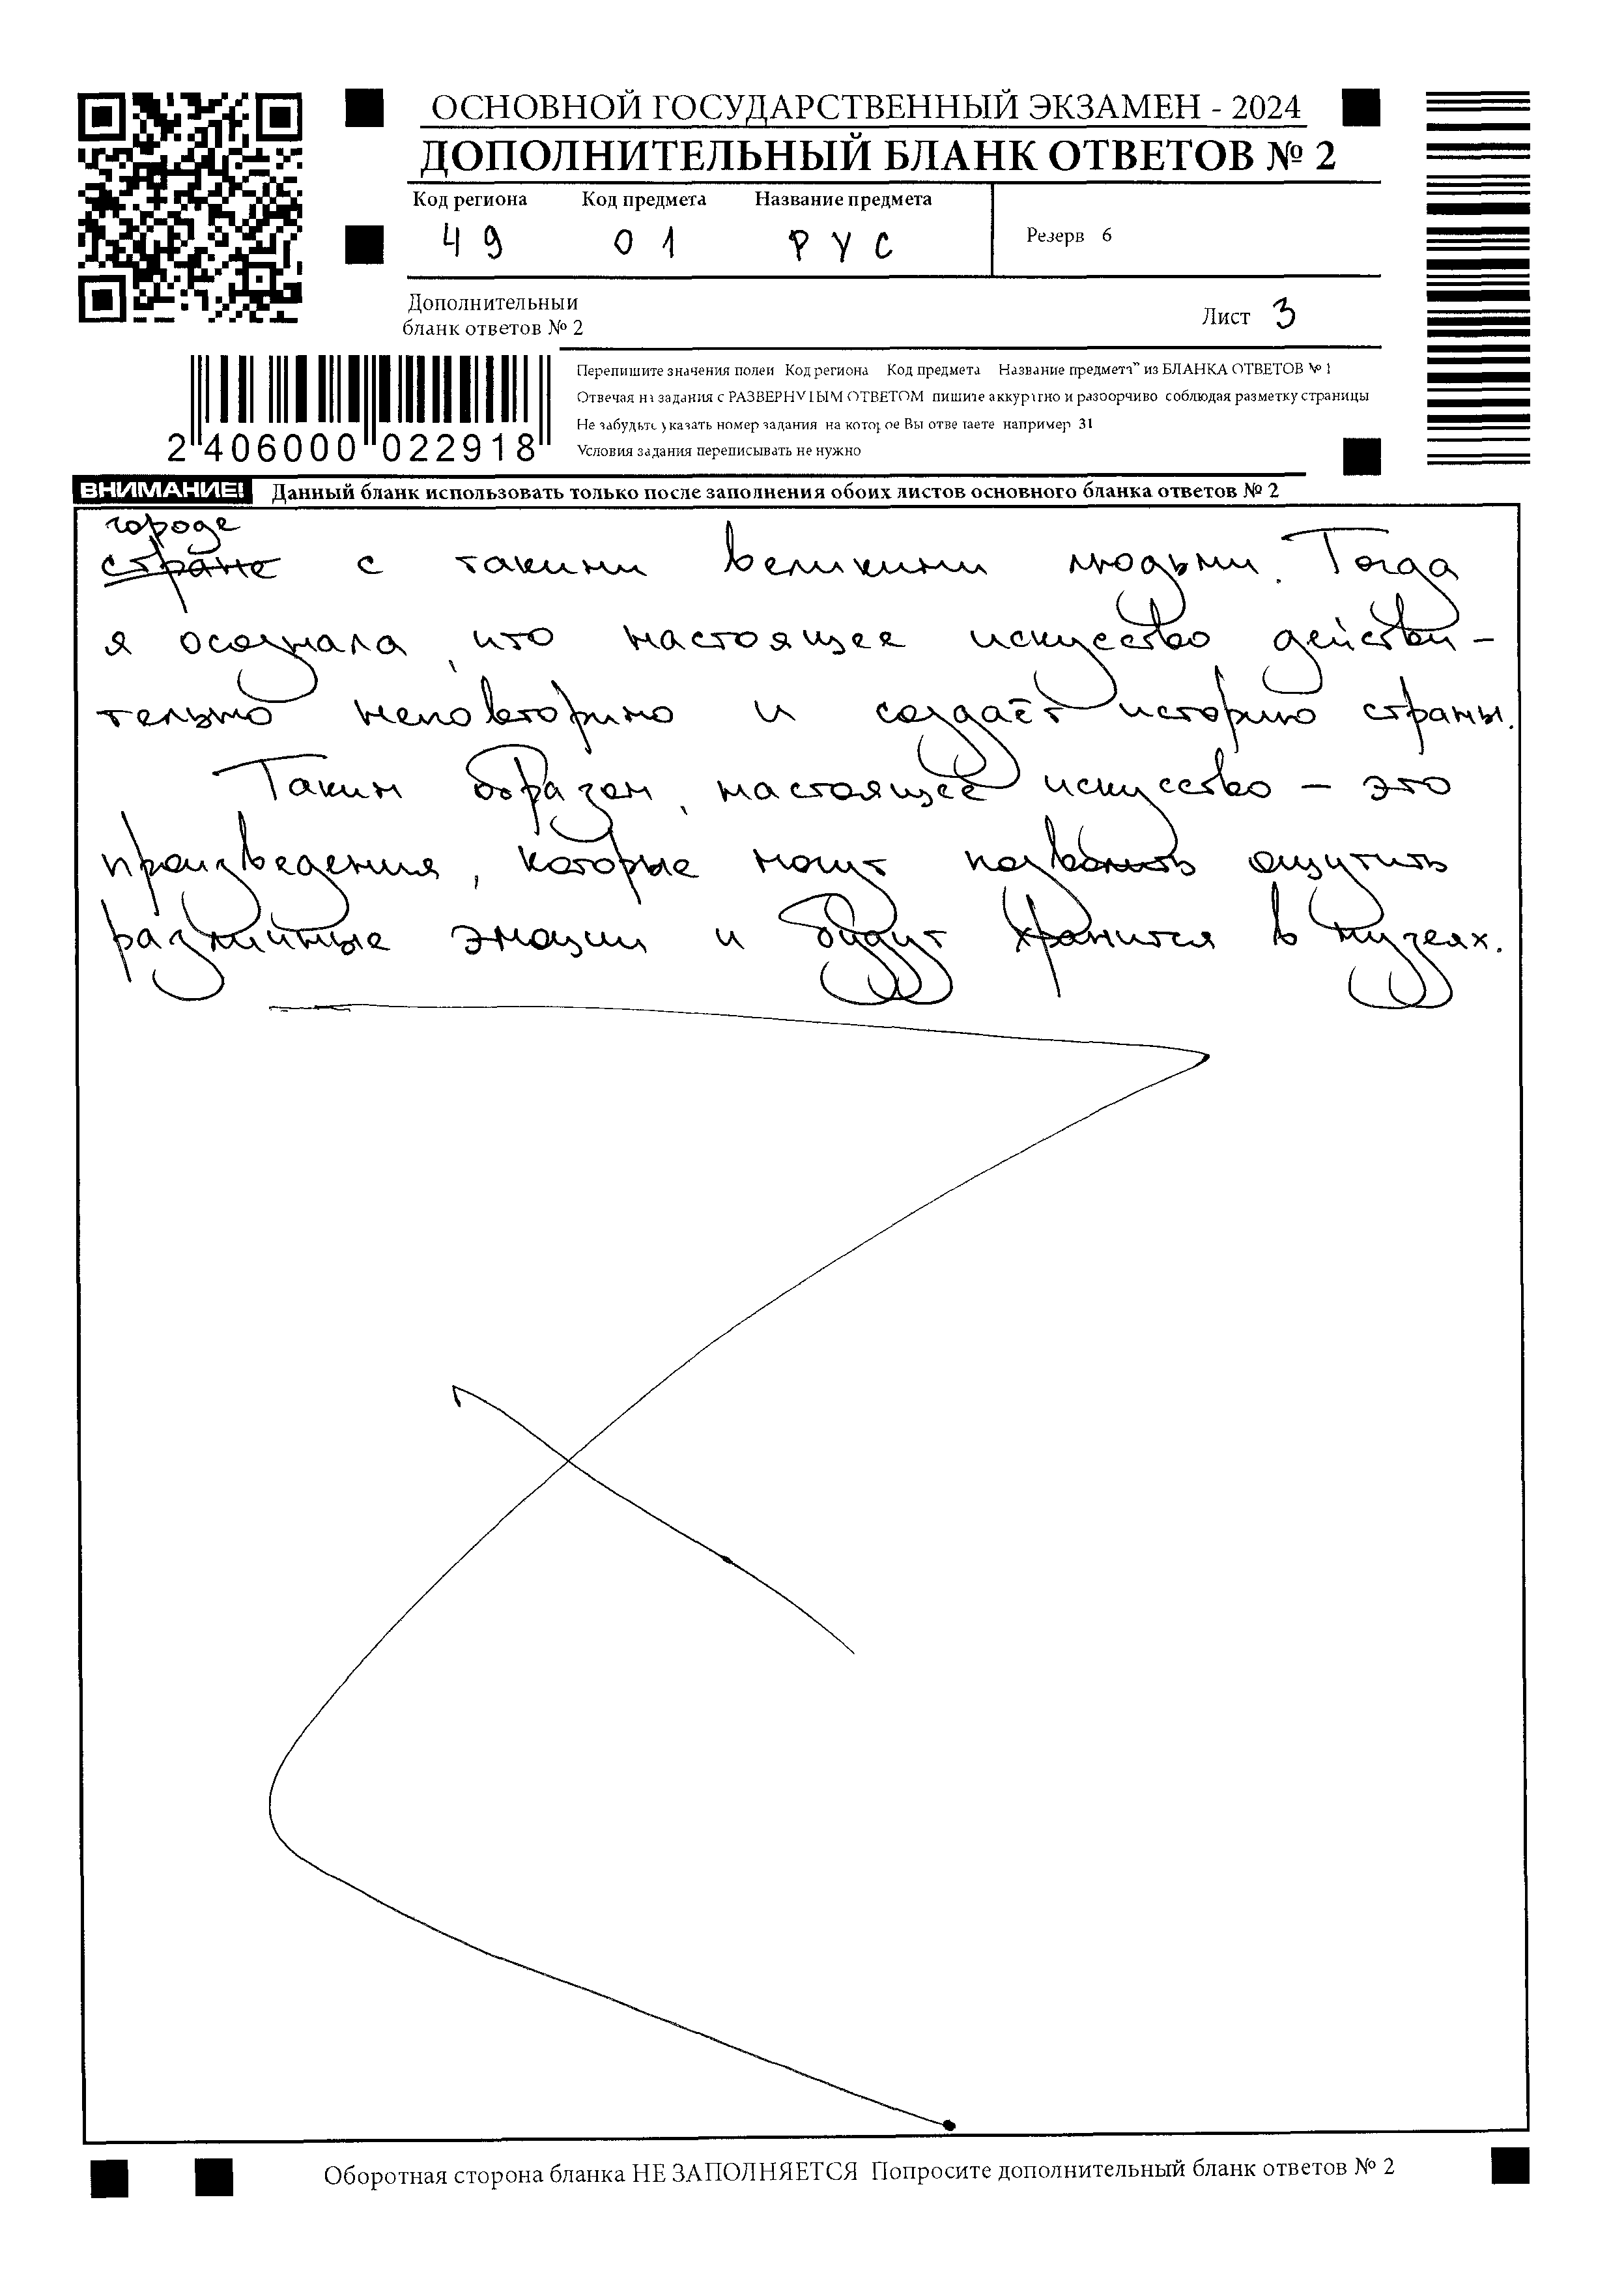 ОСНОВНОЙ ГОСУДАРСТВЕННЫЙ ЭКЗАМЕН - 2024
ДОПОЛНИТЕЛЬНЫЙ БЛАНК ОТВЕТОВ № 2
Код региона Код предмета Название предмета
49 01 РУС Резерв 6
Дополнительный
бланк ответов № 2
Лист 3
Перепишите значения полей Код региона Код предмета Название предмета" из БЛАНКА ОТВЕТОВ № 1
Отвечая на задания с РАЗВЕРНУТЫМ ОТВЕТОМ пишите аккуратно и разборчиво соблюдая разметку страницы
Не забудьте указать номер задания на которое Вы отвечаете например 31
Условия задания переписывать не нужно
2 406000 022918
ВНИМАНИЕ! Данный бланк использовать только после заполнения обоих листов основного бланка ответов № 2
городе
стране с такими великими людьми. Тогда
я осознала, что настоящее искусство действи-
тельно неповторимо и создаёт историю страны.
Таким образом, настоящее искусство – это
произведения, которые могут позволить ощутить
различные эмоции и будут хранится в музеях.
Оборотная сторона бланка НЕ ЗАПОЛНЯЕТСЯ Попросите дополнительный бланк ответов № 2